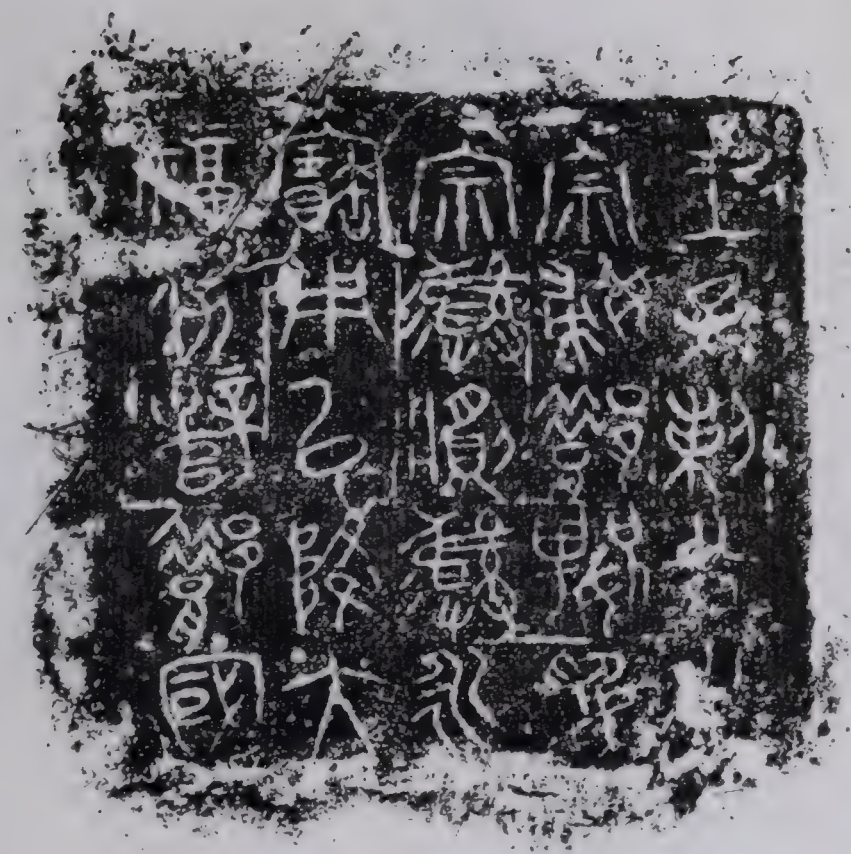 王子剌公之
宗婦鄁嫛為
宗彝䵼彝永
寶用以降大
福保辥鄁國